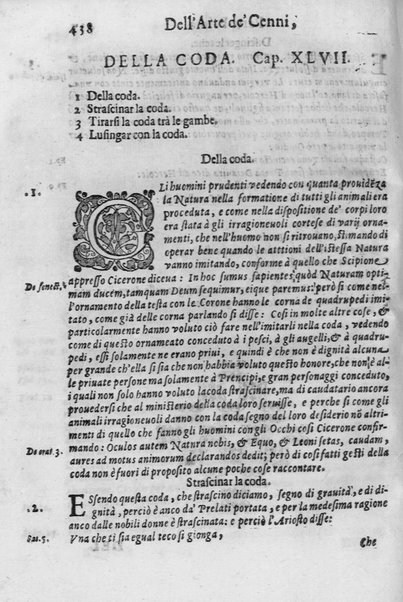 438 Dell'Arte de' Cenni,
DELLA CODA. Cap. XLVII.
1 Della coda.
2 Strascinar la coda.
3 Tirarsi la coda trà le gambe.
4 Lusingar con la coda.
Della coda.
.1. GLi huomini prudenti vedendo con quanta prouidēza
la Natura nella formatione di tutti gli animali era
proceduta, e come nella dispositione de' corpi loro
era stata à gli irragioneuoli cortese di varij orna-
menti, che nell'huomo non si ritrouano, stimando di
operar bene quando le attioni dell'istessa Natura
vanno imitando, conforme à quello che Scipione
De senect. appresso Cicerone diceua: In hoc sumus sapientes, quod Naturam opti-
mam ducem, tamquam Deum sequimur, eique paremus: però si come nel-
l'ornamento della testa con le Corone hanno le corna de quadrupedi imi-
tato, come già delle corna parlando si disse: Così in molte altre cose, &
particolarmente hanno voluto ciò fare nell'imitarli nella coda, vedendo
come di questo ornameato conceduto à i pesci, à gli augelli, & à quadru-
pedi, essi solamente ne erano priui, e quindi è che non è dignità alcuna
per grande ch'ella si sia che non habbia voluto questo honore, che non è al-
le priuate persone ma solamente à Prencipi, e gran personaggi conceduto,
i quali non solo hanno voluto la coda strascinare, ma di caudatario ancora
prouedersi che al ministerio della coda loro seruisse, e perche si come gli
animali irragioneuoli danno con la coda segno del loro desiderio nõ altri-
menti di quello che fanno gli huomini con gli Occhi così Cicerone confir-
De orat. 3. mando: Oculos autem Natura nobis, & Equo, & Leoni setas, caudam,
aures ad motus animorum declarandos dedit; però di così fatti gesti della
coda non è fuori di proposito alcune poche cose raccontare.
Strascinar la coda.
.2. ESsendo questa coda, che strascino diciamo, segno di grauità, e di di-
gnità, perciò è anco da' Prelati portata, e per la medesima ragione
anco dalle nobili donne è strascinata: e perciò l'Ariosto disse:
Sat. 5. Vna che ti sia egual teco si gionga,
Che